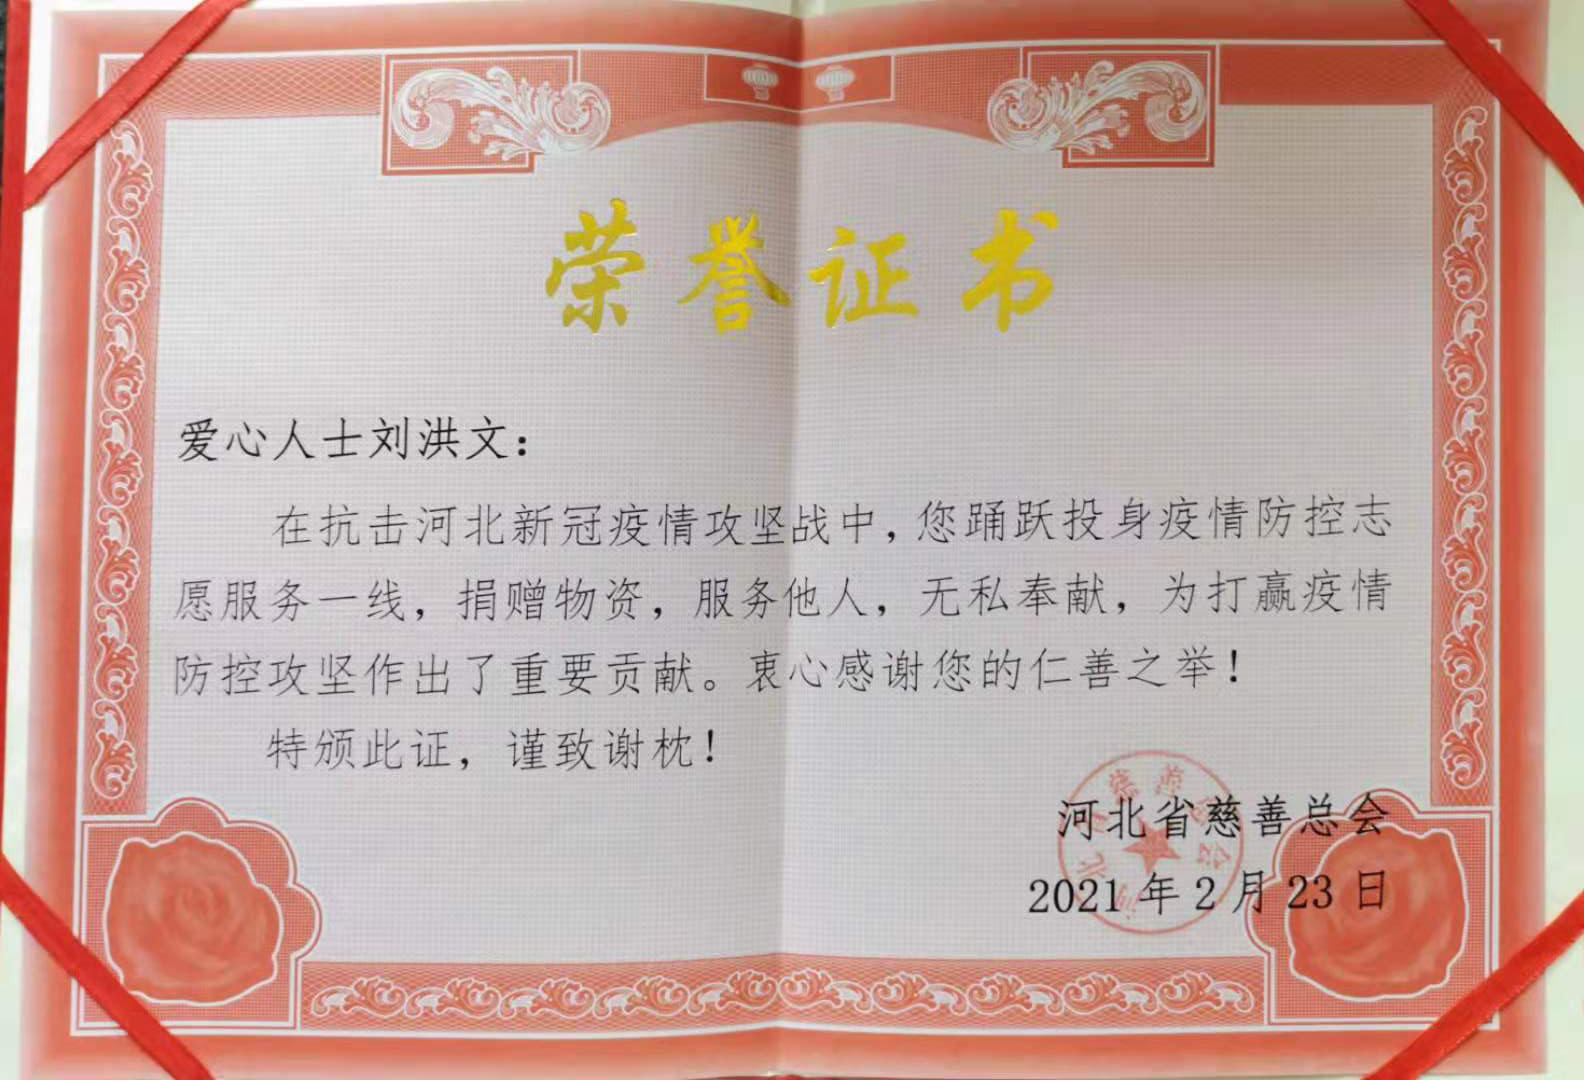 荣誉证书
爱心人士刘洪文：
在抗击河北新冠疫情攻坚战中，您踊跃投身疫情防控志
愿服务一线，捐赠物资，服务他人，无私奉献，为打赢疫情
防控攻坚作出了重要贡献。衷心感谢您的仁善之举！
特颁此证，谨致谢枕！
河北省慈善总会
2021年2月23日